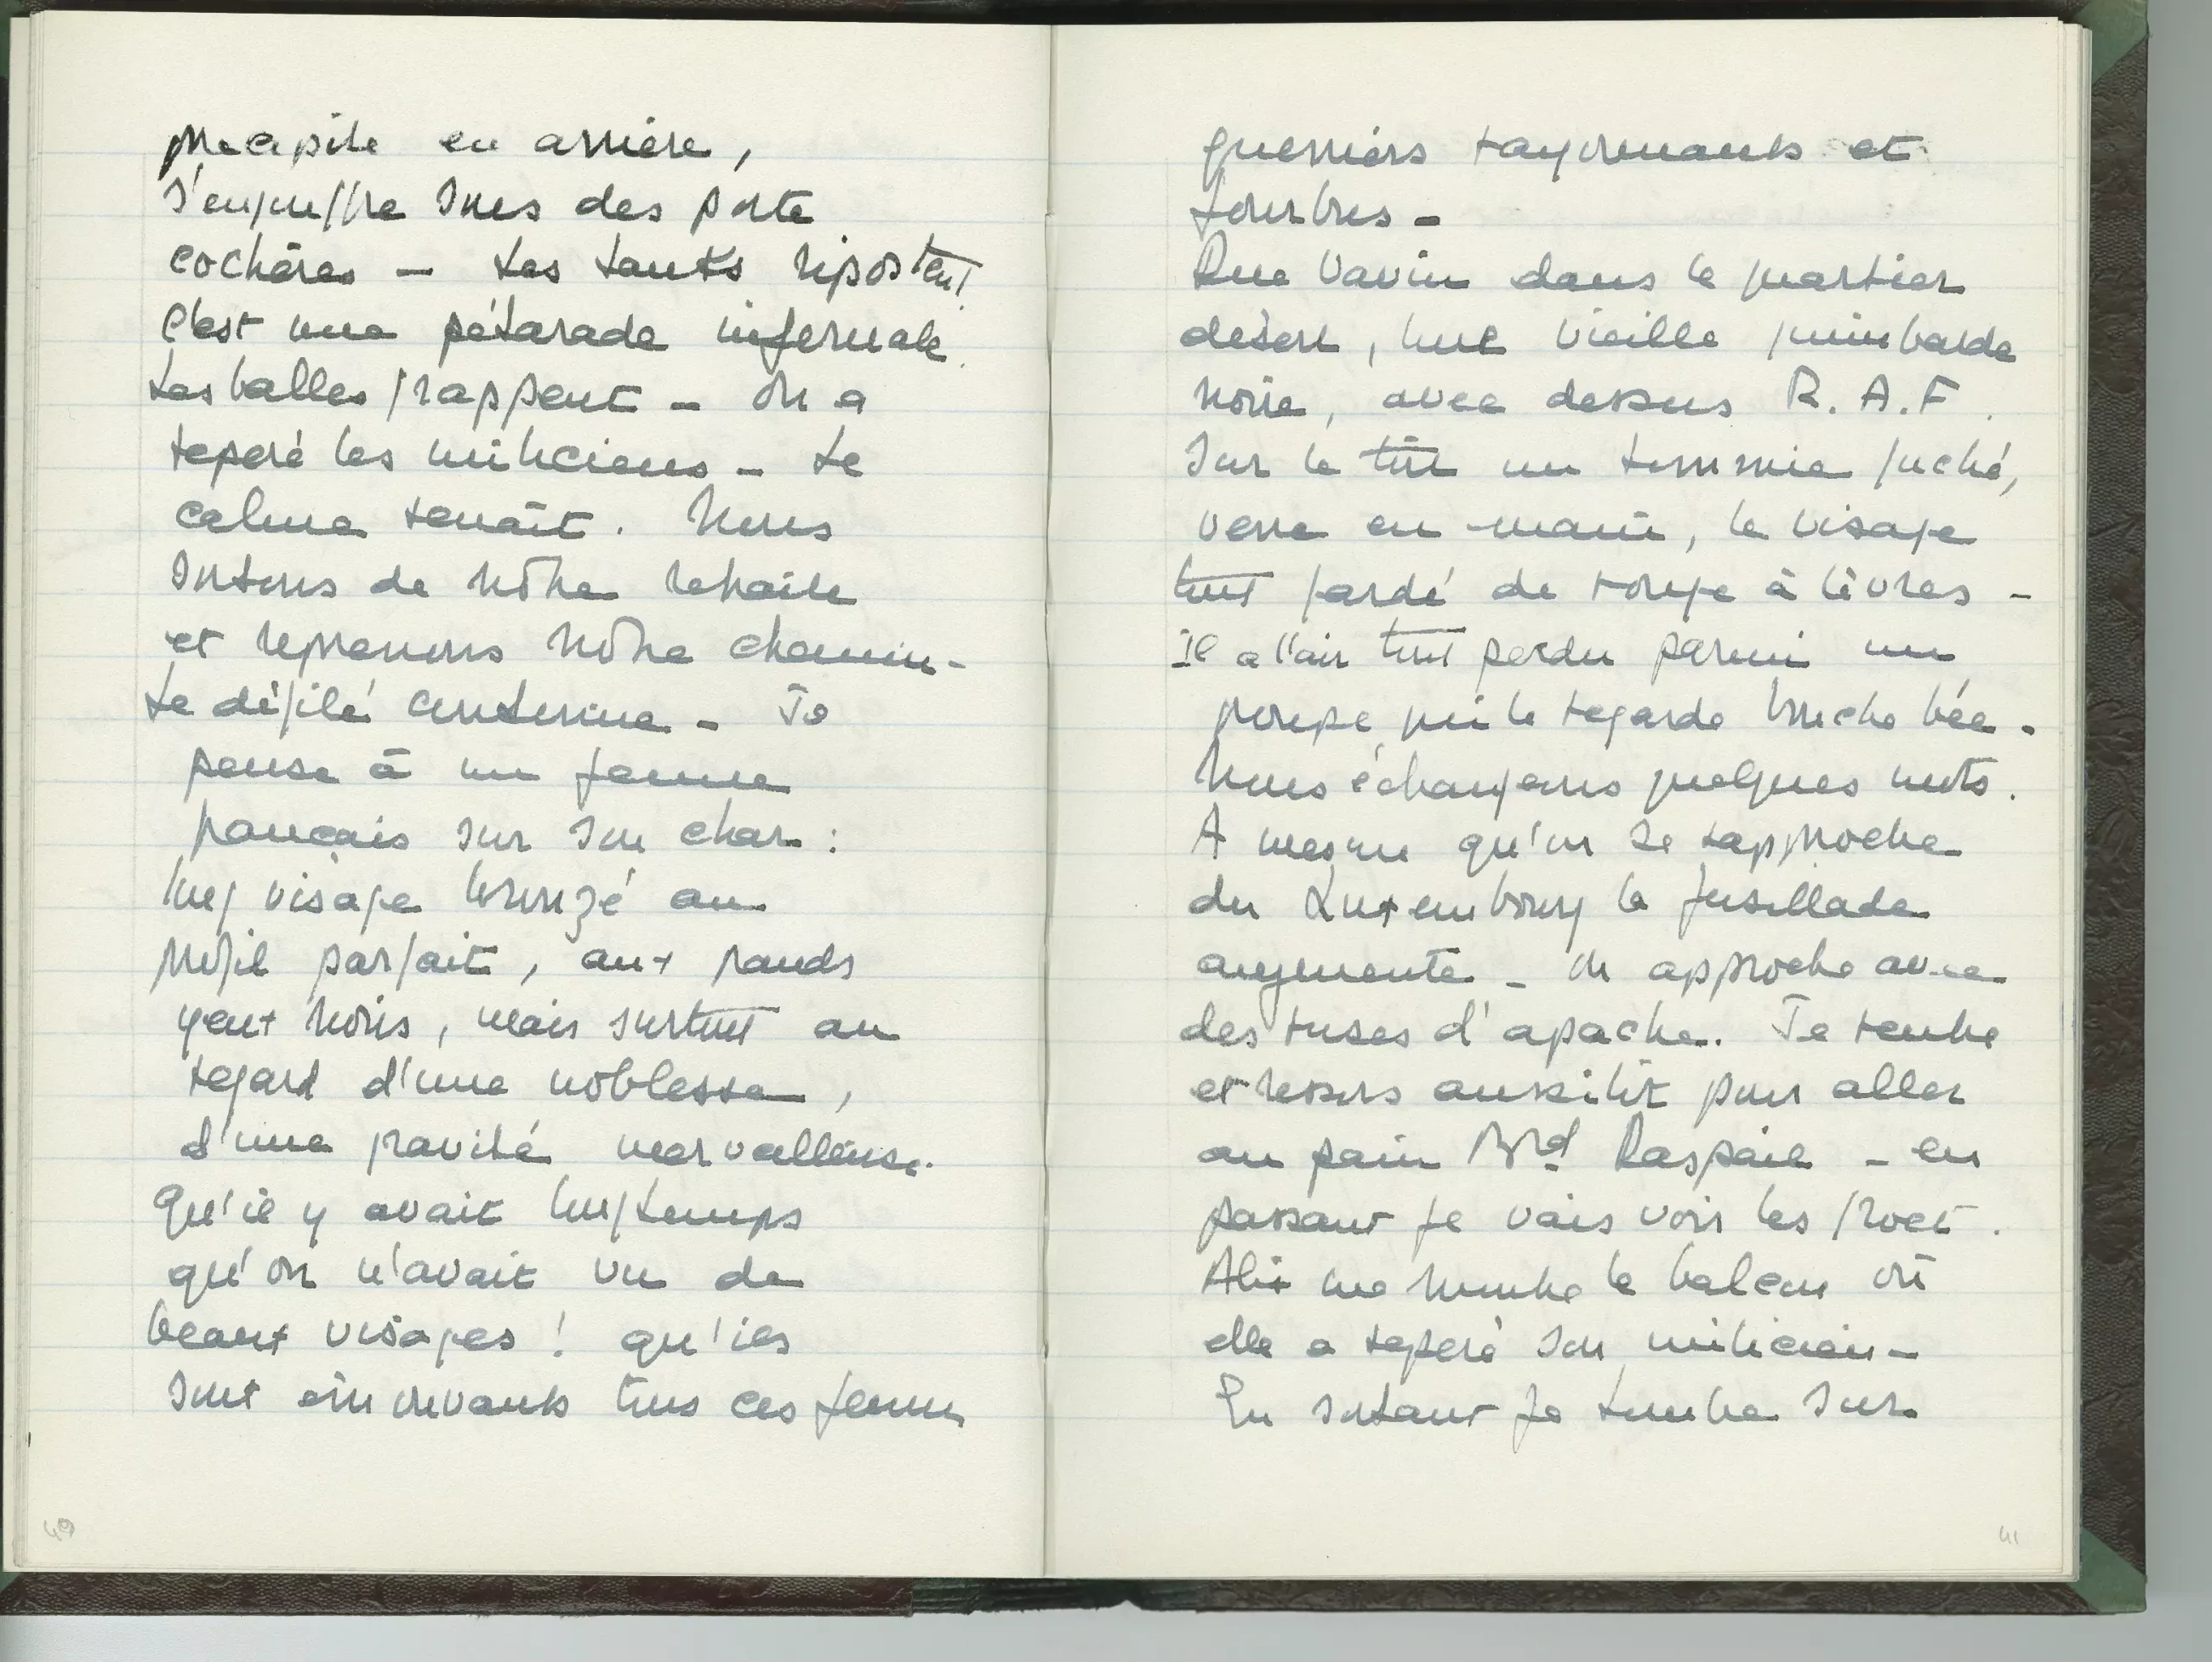 precipite en arrière,
s'engouffre sous des porte
cochères – Les tanks ripostent.
C'est une pétarade infernale.
Les balles frappent – On a
reperé les miliciens – Le
calme renaît. Nous
sortons de nôtre retraite
et reprenons nôtre chemin –
Le défilé continue – Je
pense à un jeune
français sur son char :
long visage bronzé au
profil parfait, aux grands
yeux noirs, mais surtout au
regard d'une noblesse,
d'une gravité merveilleuse.
Qu'il y avait longtemps
qu'on n'avait vu de
beaux visages ! qu'ils
sont émouvants tous ces jeunes
guerriers rayonnants et
fourbus –
Rue Vavin dans le quartier
désert, une vieille guimbarde
noire, avec dessus R.A.F.
Sur le toit un tommie juché,
verre en main, le visage
tout fardé de rouge à lèvres –
Il a l'air tout perdu parmi un
groupe qui le regarde bouche bée –
Nous échangeons quelques mots.
A mesure qu'on se rapproche
du Luxembourg la fusillade
augmente – On approche avec
des ruses d'apache. Je rentre
et ressors aussitôt pour aller
au pain Brd Raspail – en
passant je vais voir les
Alix me montre le balcon où
elle a reperé son milicien –
En sortant je tombe sur
49
41